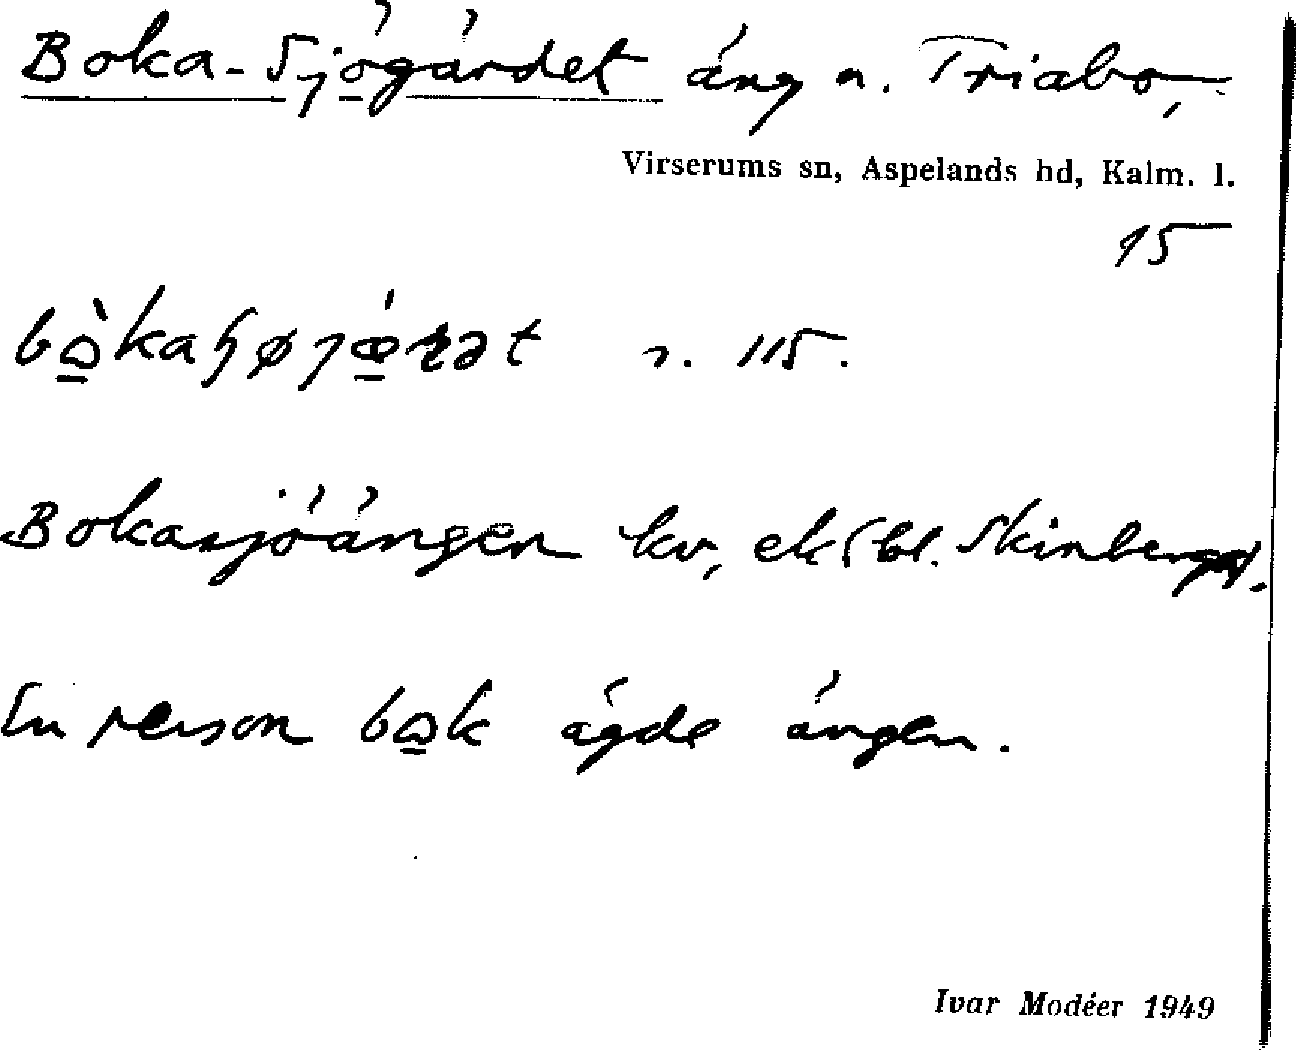 Boka-Sjögärdet äng n. Triabo,
Virserums sn, Aspelands hd, Kalm. l.
15
n. 115.
Bokasjöängen kv, ek.bl.
En person bok ägde ängen.
Ivar Modéer 1949